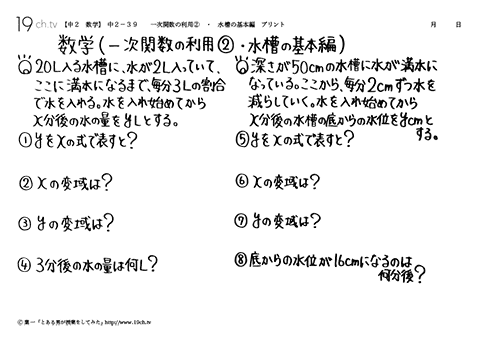 19 ch.tv 【中2 数学】 中2-39 一次関数の利用② ・ 水槽の基本編 プリント 月 日
数学(一次関数の利用②・水槽の基本編)
Q 20L入る水槽に、水が2L入っていて、
ここに満水になるまで、毎分3Lの割合
で水を入れる。水を入れ始めてから
x分後の水の量をyLとする。
①yをxの式で表すと?
② xの変域は?
③ yの変域は?
④ 3分後の水の量は何L?
Q 深さが50cmの水槽に水が満水に
なっている。ここから、毎分2cmずつ水を
減らしていく。水を入れ始めてから
x分後の水槽の底からの水位をycmと
する。
⑤yをxの式で表すと?
⑥ xの変域は?
⑦ yの変域は?
⑧底からの水位が16cmになるのは
何分後?
© 葉一「とある男が授業をしてみた」http://www.19ch.tv